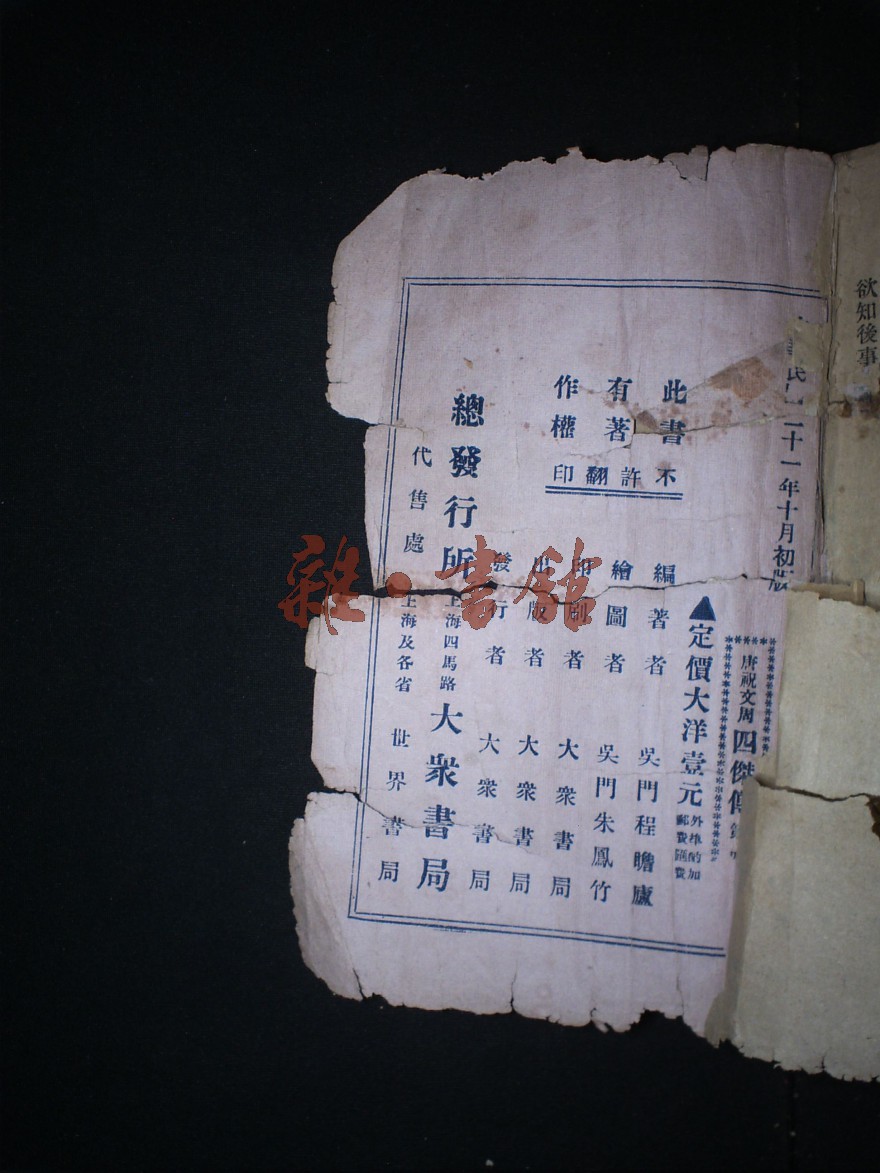 欲知後事
民 二十一年十月初版
唐祝文周四傑傳
▲定價大洋壹元
外埠酌加
郵費匯費
此書
有著
作權
不許翻印
編著者 吳門程瞻廬
繪圖者 吳門朱鳳竹
印刷者 大衆書局
出版者 大衆書局
發行者 大衆書局
總發行所 上海四馬路 大衆書局
代售處 上海及各省 世界書局
雜·書館